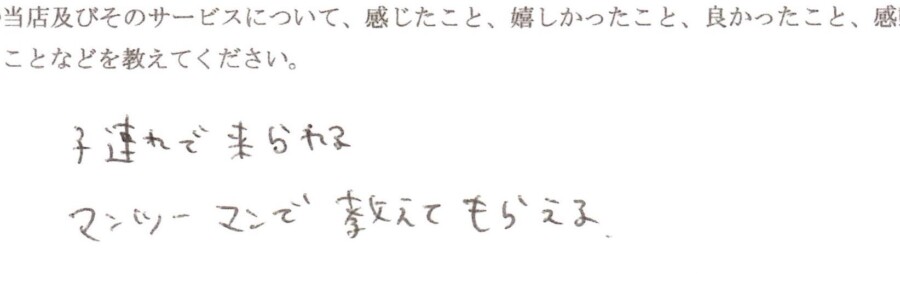 当店及びそのサービスについて、感じたこと、嬉しかったこと、良かったこと、感
ことなどを教えてください。
子連れで来られる
マンツーマンで教えてもらえる